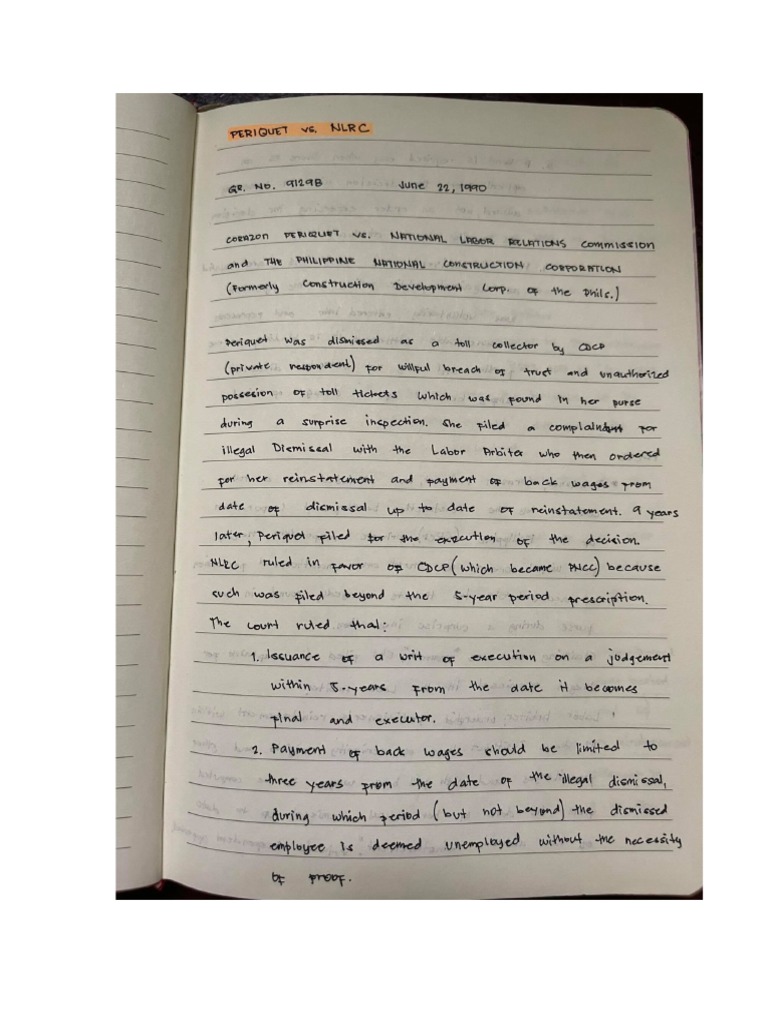 PERIQUET vs. NLRC
GR. No. 91298 June 22, 1990
CORAZON PERIQUET VS. NATIONAL LABOR RELATIONS Commission
and THE PHILIPPINE NATIONAL CONSTRUCTION CORPORATION
(Formerly Construction Development Corp. of the Phils.)
Periquet was dismissed as a toll collector by CDCP
(private respondent) for willful breach of trust and unauthorized
possesion of toll tickets which was found in her purse
during a surprise inspection. She filed a complaint for
illegal Dismissal with the Labor Arbiter who then ordered
for her reinstatement and payment of back wages from
date of dismissal up to date of reinstatement. 9 years
later, Periquet filed for the execution of the decision.
NLRC ruled in favor of CDCP (which became PNCC) because
such was filed beyond the 5-year period prescription.
The court ruled that:
1. Issuance of a writ of execution on a judgement
within 5-years from the date it becomes
final and executor.
2. Payment of back wages should be limited to
three years from the date of the illegal dismissal,
during which period (but not beyond) the dismissed
employee is deemed unemployed without the necessity
of proof.